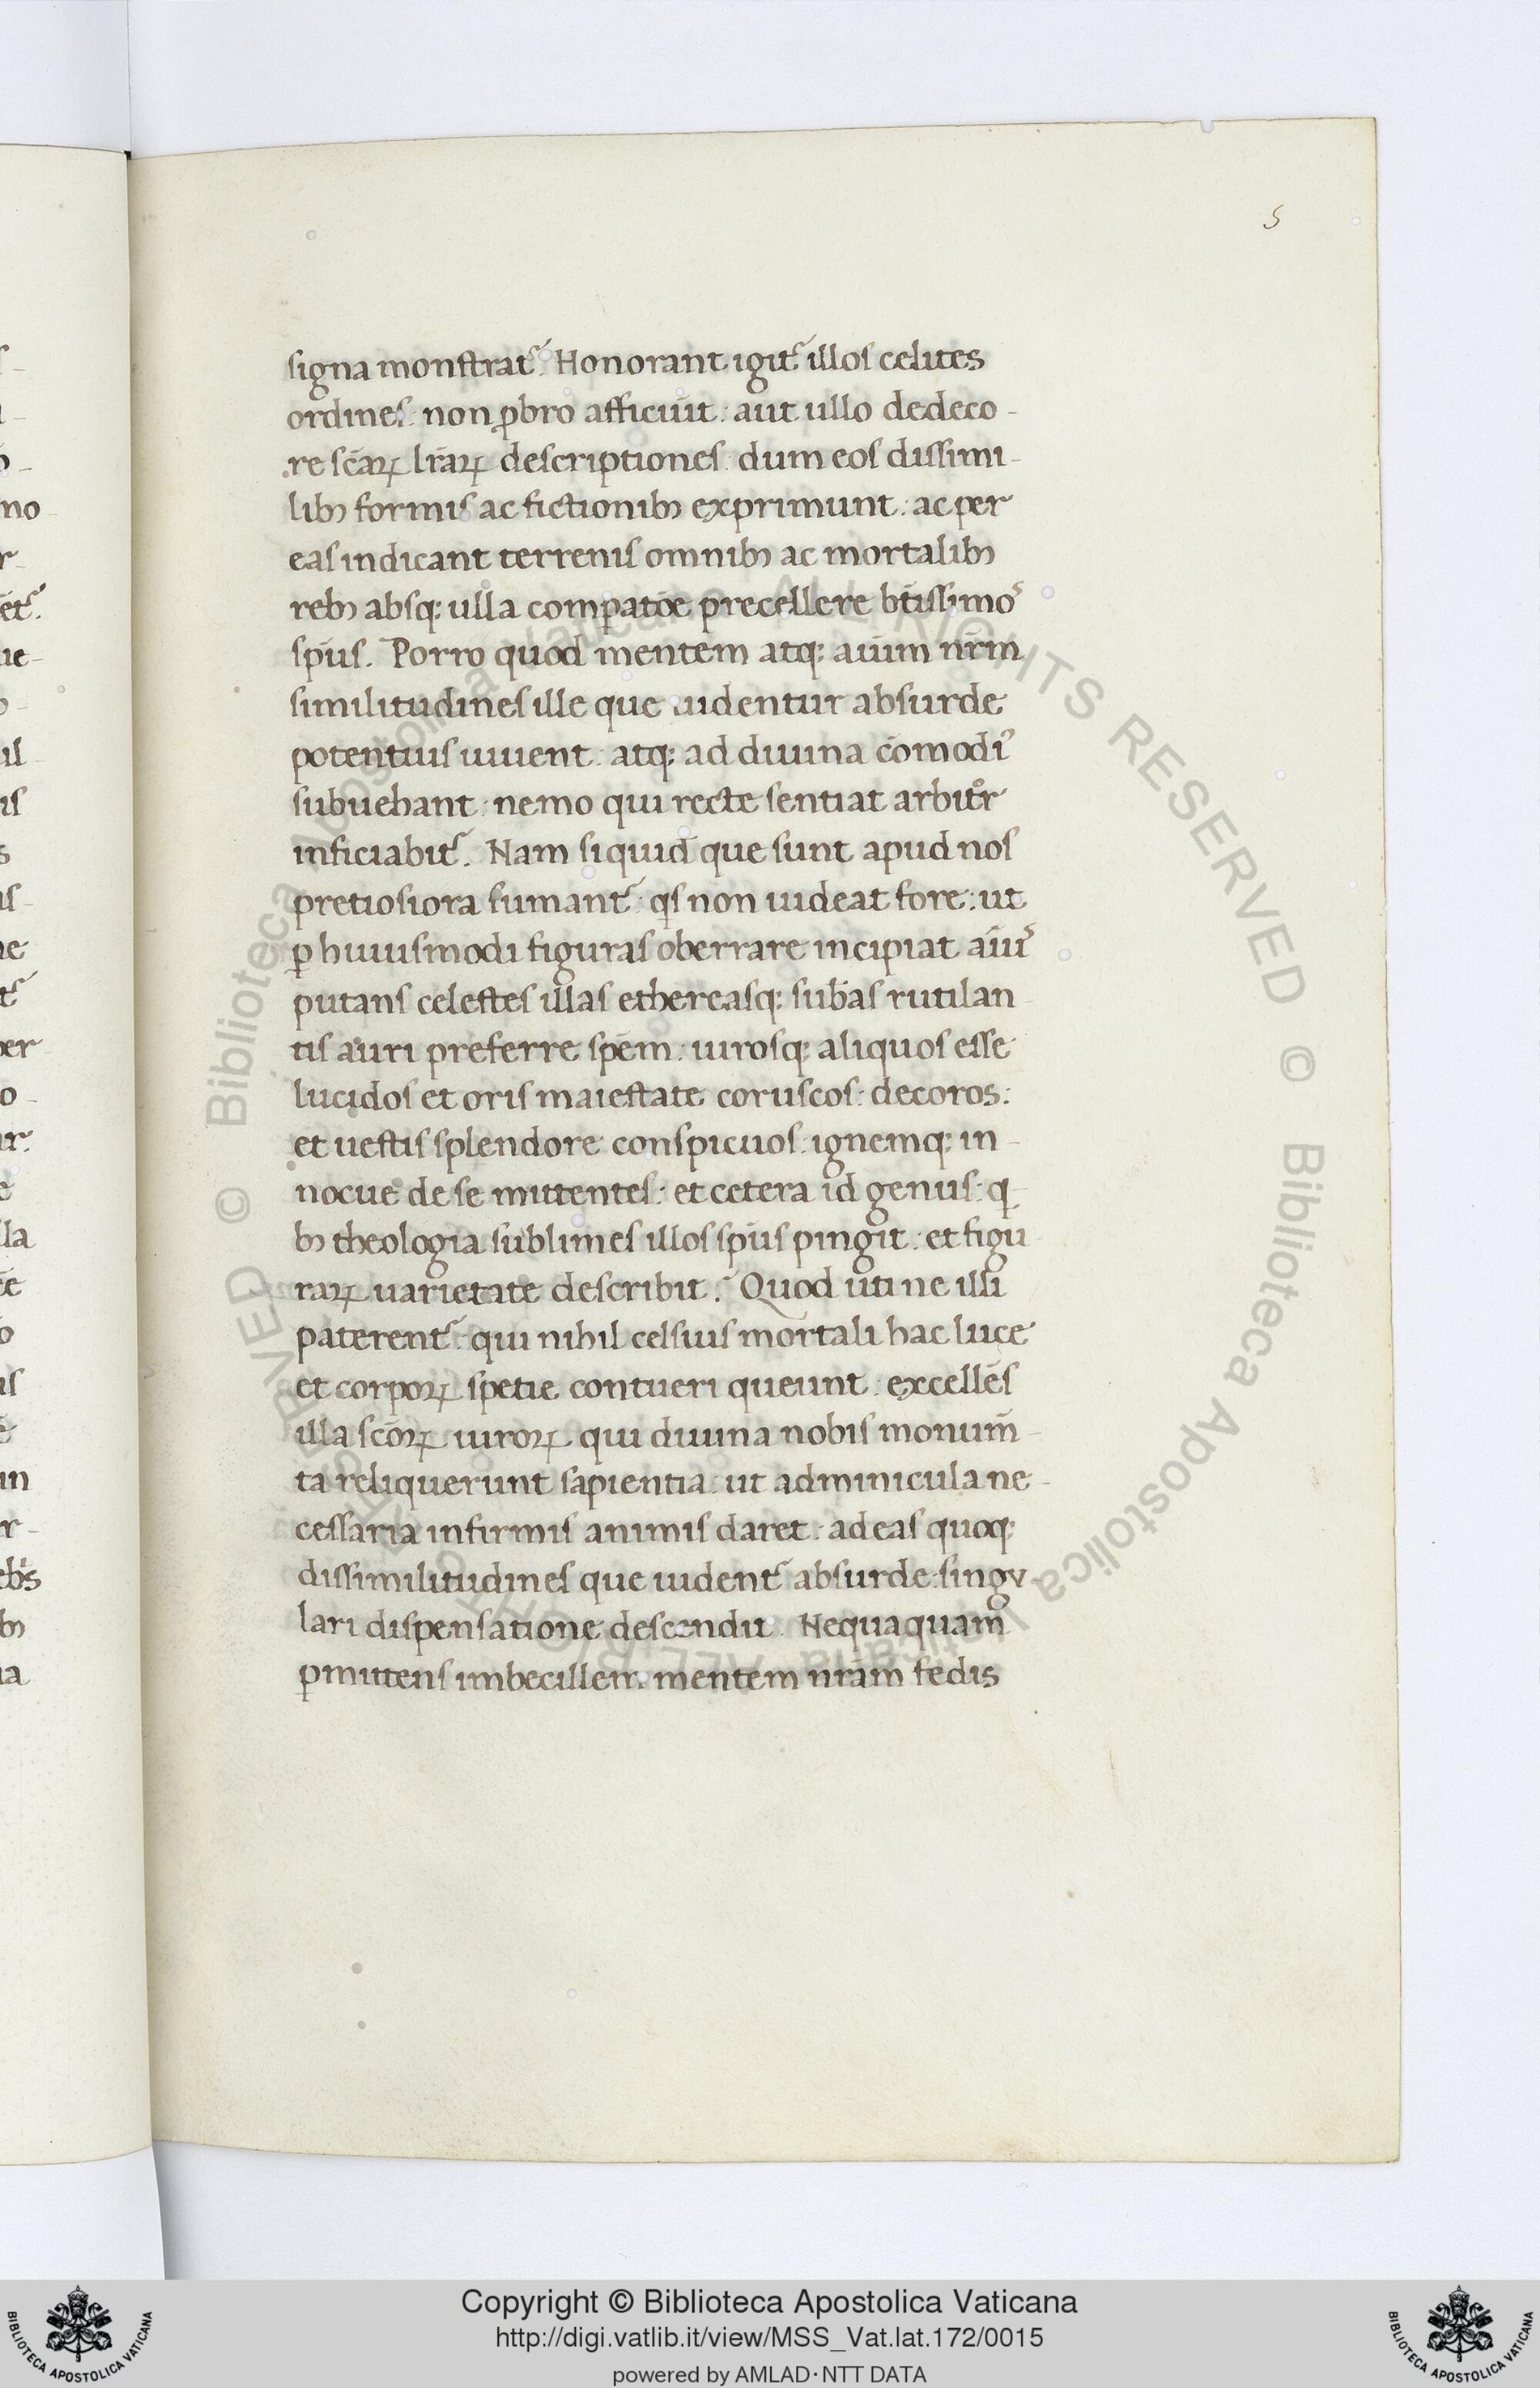 5
signa monstrat᷒. Honorant igit᷒ illos celites
ordines: non ꝓbro afficiūt: aut ullo dedeco-
re scāꝝ lrāꝝ descriptiones: dum eos dissimi-
libꝫ formis ac fictionibꝫ exprimunt: ac per
eas indicant terrenis omnibꝫ ac mortalibꝫ
rebꝫ absqꝫ ulla comꝑatōe precellere btīssimoˀ
spūs. Porro quod mentem atqꝫ aīum nrm̄
similitudines ille que uidentur absurde
potentius iuuent: atqꝫ ad diuina cōmodiˀ
subuehant: nemo qui recte sentiat arbitͦr
inficiabit᷒. Nam siquid que sunt apud nos
pretiosiora sumant᷒: qͥs non uideat fore: ut
ꝑ huiusmodi figuras oberrare incipiat aīuˀ
putans celestes illas ethereasqꝫ sub̄as rutilan
tis auri preferre spēm: uirosqꝫ aliquos esse
lucidos et oris maiestate coruscos: decoros:
et uestis splendore conspicuos: ignemqꝫ in-
nocue de se mittentes: et cetera id genus: qͥ
bꝫ theologia sublimes illos spūs pingit: et figu
raꝝ uarietate describit. Quod uti ne illi
paterent᷒: qui nihil celsius mortali hac luce
et corpoꝝ spetie contueri queunt: excellēs
illa scōꝝ uiroꝝ qui diuina nobis monum̄-
ta reliquerunt sapientia: ut adminicula ne-
cessaria infirmis animis daret: ad eas quoqꝫ
dissimilitudines que uident᷒ absurde: singu
lari dispensatione descendit. Nequaquam
ꝑmittens imbecillem mentem nrām fedis
Copyright © Biblioteca Apostolica Vaticana
http://digi.vatlib.it/view/MSS_Vat.lat.172/0015
powered by AMLAD·NTT DATA